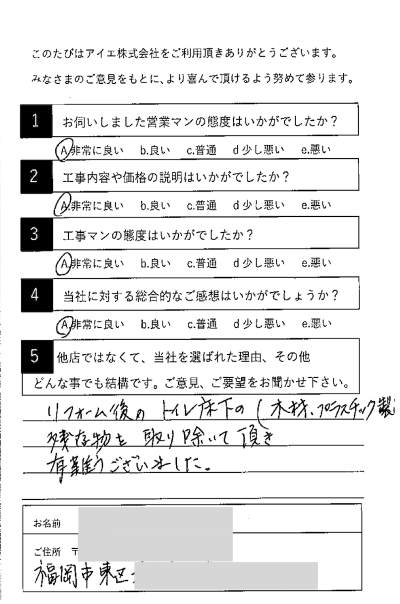 このたびはアイエ株式会社をご利用頂きありがとうございます。
みなさまのご意見をもとに、より喜んで頂けるよう努めて参ります。
1 お伺いしました営業マンの態度はいかがでしたか?
A.非常に良い b.良い c.普通 d 少し悪い e.悪い
2 工事内容や価格の説明はいかがでしたか?
A.非常に良い b.良い c.普通 d 少し悪い e.悪い
3 工事マンの態度はいかがでしたか?
A.非常に良い b.良い c.普通 d 少し悪い e.悪い
4 当社に対する総合的なご感想はいかがでしょうか?
A.非常に良い b.良い c.普通 d 少し悪い e.悪い
5 他店ではなくて、当社を選ばれた理由、その他
どんな事でも結構です。ご意見、ご要望をお聞かせ下さい。
リフォーム後の トイレ床下の (木材、プラスチック製
残存物を 取り除いて頂き
有難うございました。
お名前
ご住所 〒
福岡市東区